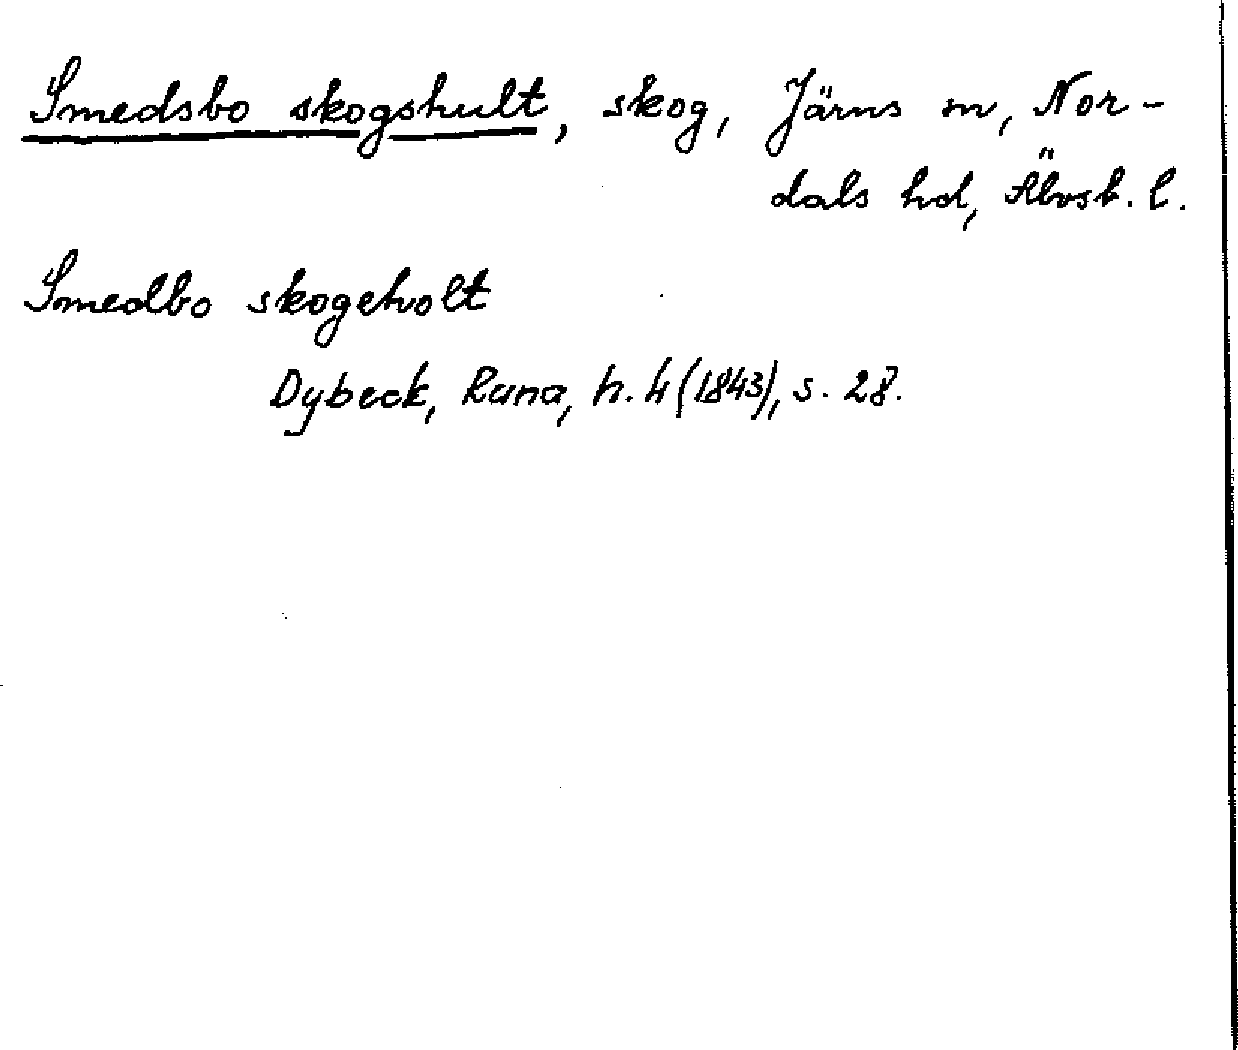 Smedsbo skogshult, skog, Järns m, Nor-
dals hd, Älvsb. l.
Smedbo skogeholt
Dybeck, Runa, h. 4 (1843), s. 28.